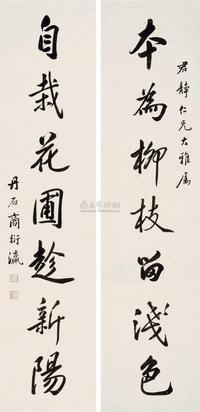 君靜仁兄大雅屬
本為柳枝留淺色
自栽花圃趁新陽
丹石商衍瀛